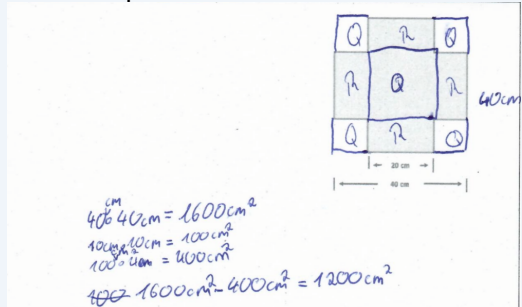 Q R Q
R Q R
40cm
Q R Q
20 cm
40 cm
40cm · 40cm = 1600cm²
10cm · 10cm = 100cm²
= 400cm²
1600cm² - 400cm² = 1200cm²